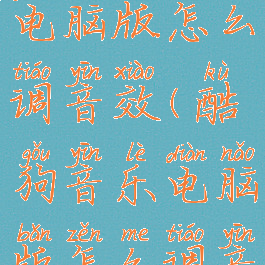 电脑版怎么
tiáo yīn xiào kù
调音效(酷
gǒu yīn lè diàn nǎo
狗音乐电脑
bǎn zěn me tiáo yīn
版怎么调音